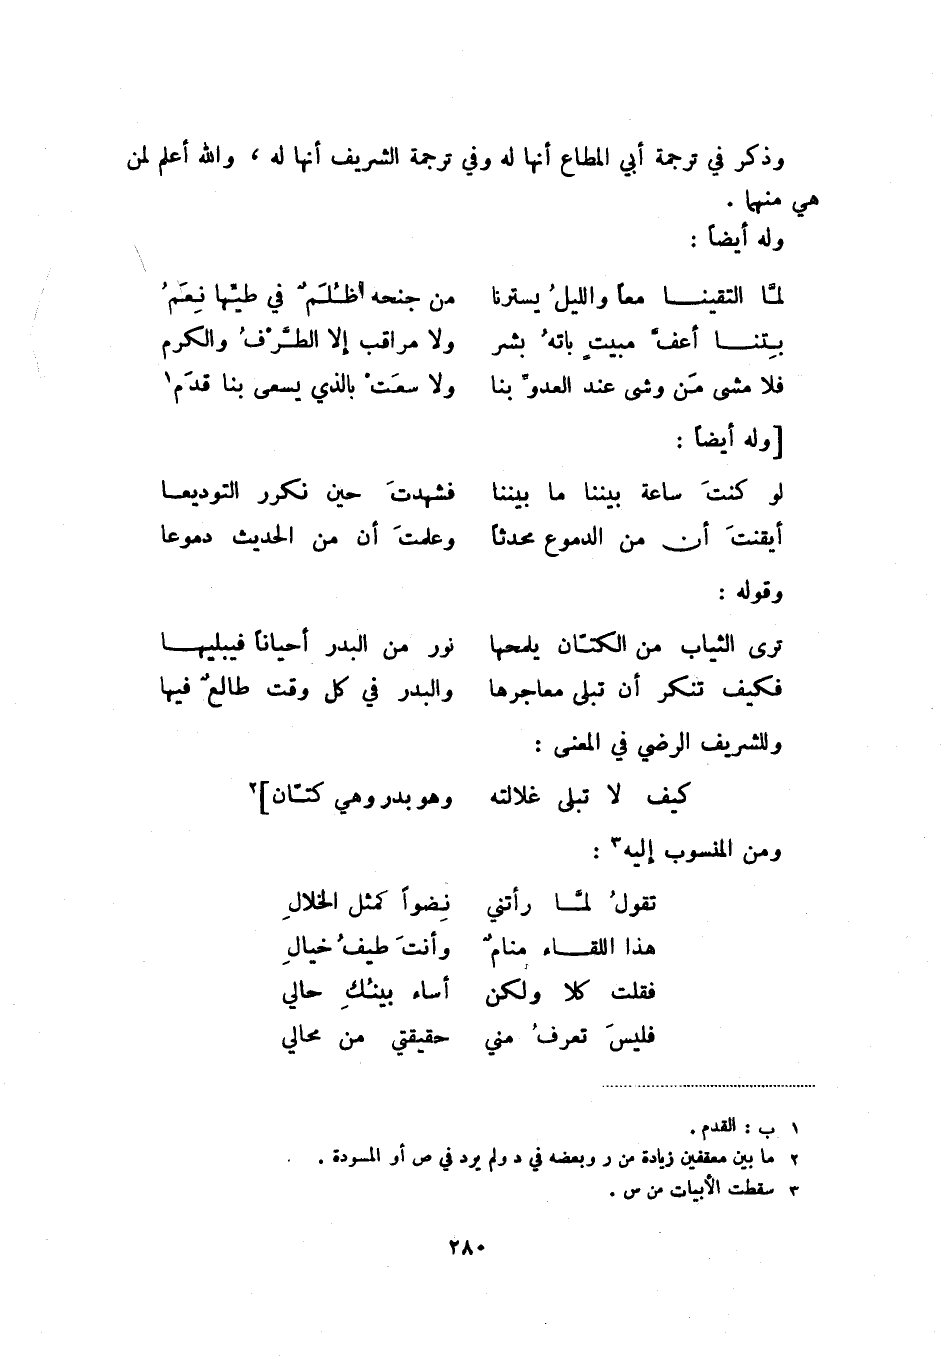 وذكر في ترجمة أبي المطاع أنها له وفي ترجمة الشريف أنها له ، والله أعلم لمن
هي منهما .
وله أيضاً :
لمَّا التقينـــا معاً والليلُ يسترنا من جنحه ظُلَمٌ في طيّها نِعَمُ
بِتنـــا أعفَّ مبيتٍ باتهُ بشر ولا مراقب إلا الطَّرْفُ والكرم
فلا مشى مَن وشى عند العدوّ بنا ولا سعَتْ بالذي يسعى بنا قدَم١
[وله أيضاً :
لو كنتَ ساعة بيننا ما بيننا فشهدتَ حين نكرر التوديعا
أيقنتَ أن من الدموع محدثاً وعلمتَ أن من الحديث دموعا
وقوله :
ترى الثياب من الكتّان يلمحها نور من البدر أحياناً فيبليهـــا
فكيف تنكر أن تبلى معاجرها والبدر في كل وقت طالعٌ فيها
وللشريف الرضي في المعنى :
كيف لا تبلى غلالته وهو بدر وهي كتّان]٢
ومن المنسوب إليه٣ :
تقولُ لمَّـــا رأتني نِضواً كمثل الخلالِ
هذا اللقـــاء منامٌ وأنتَ طيفُ خيالِ
فقلت كلا ولكن أساء بينُكِ حالي
فليسَ تعرفُ مني حقيقتي من محالي
١ ب : القدم .
٢ ما بين معقفين زيادة من ر وبعضه في د ولم يرد في ص أو المسودة .
٣ سقطت الأبيات من س .
٢٨٠